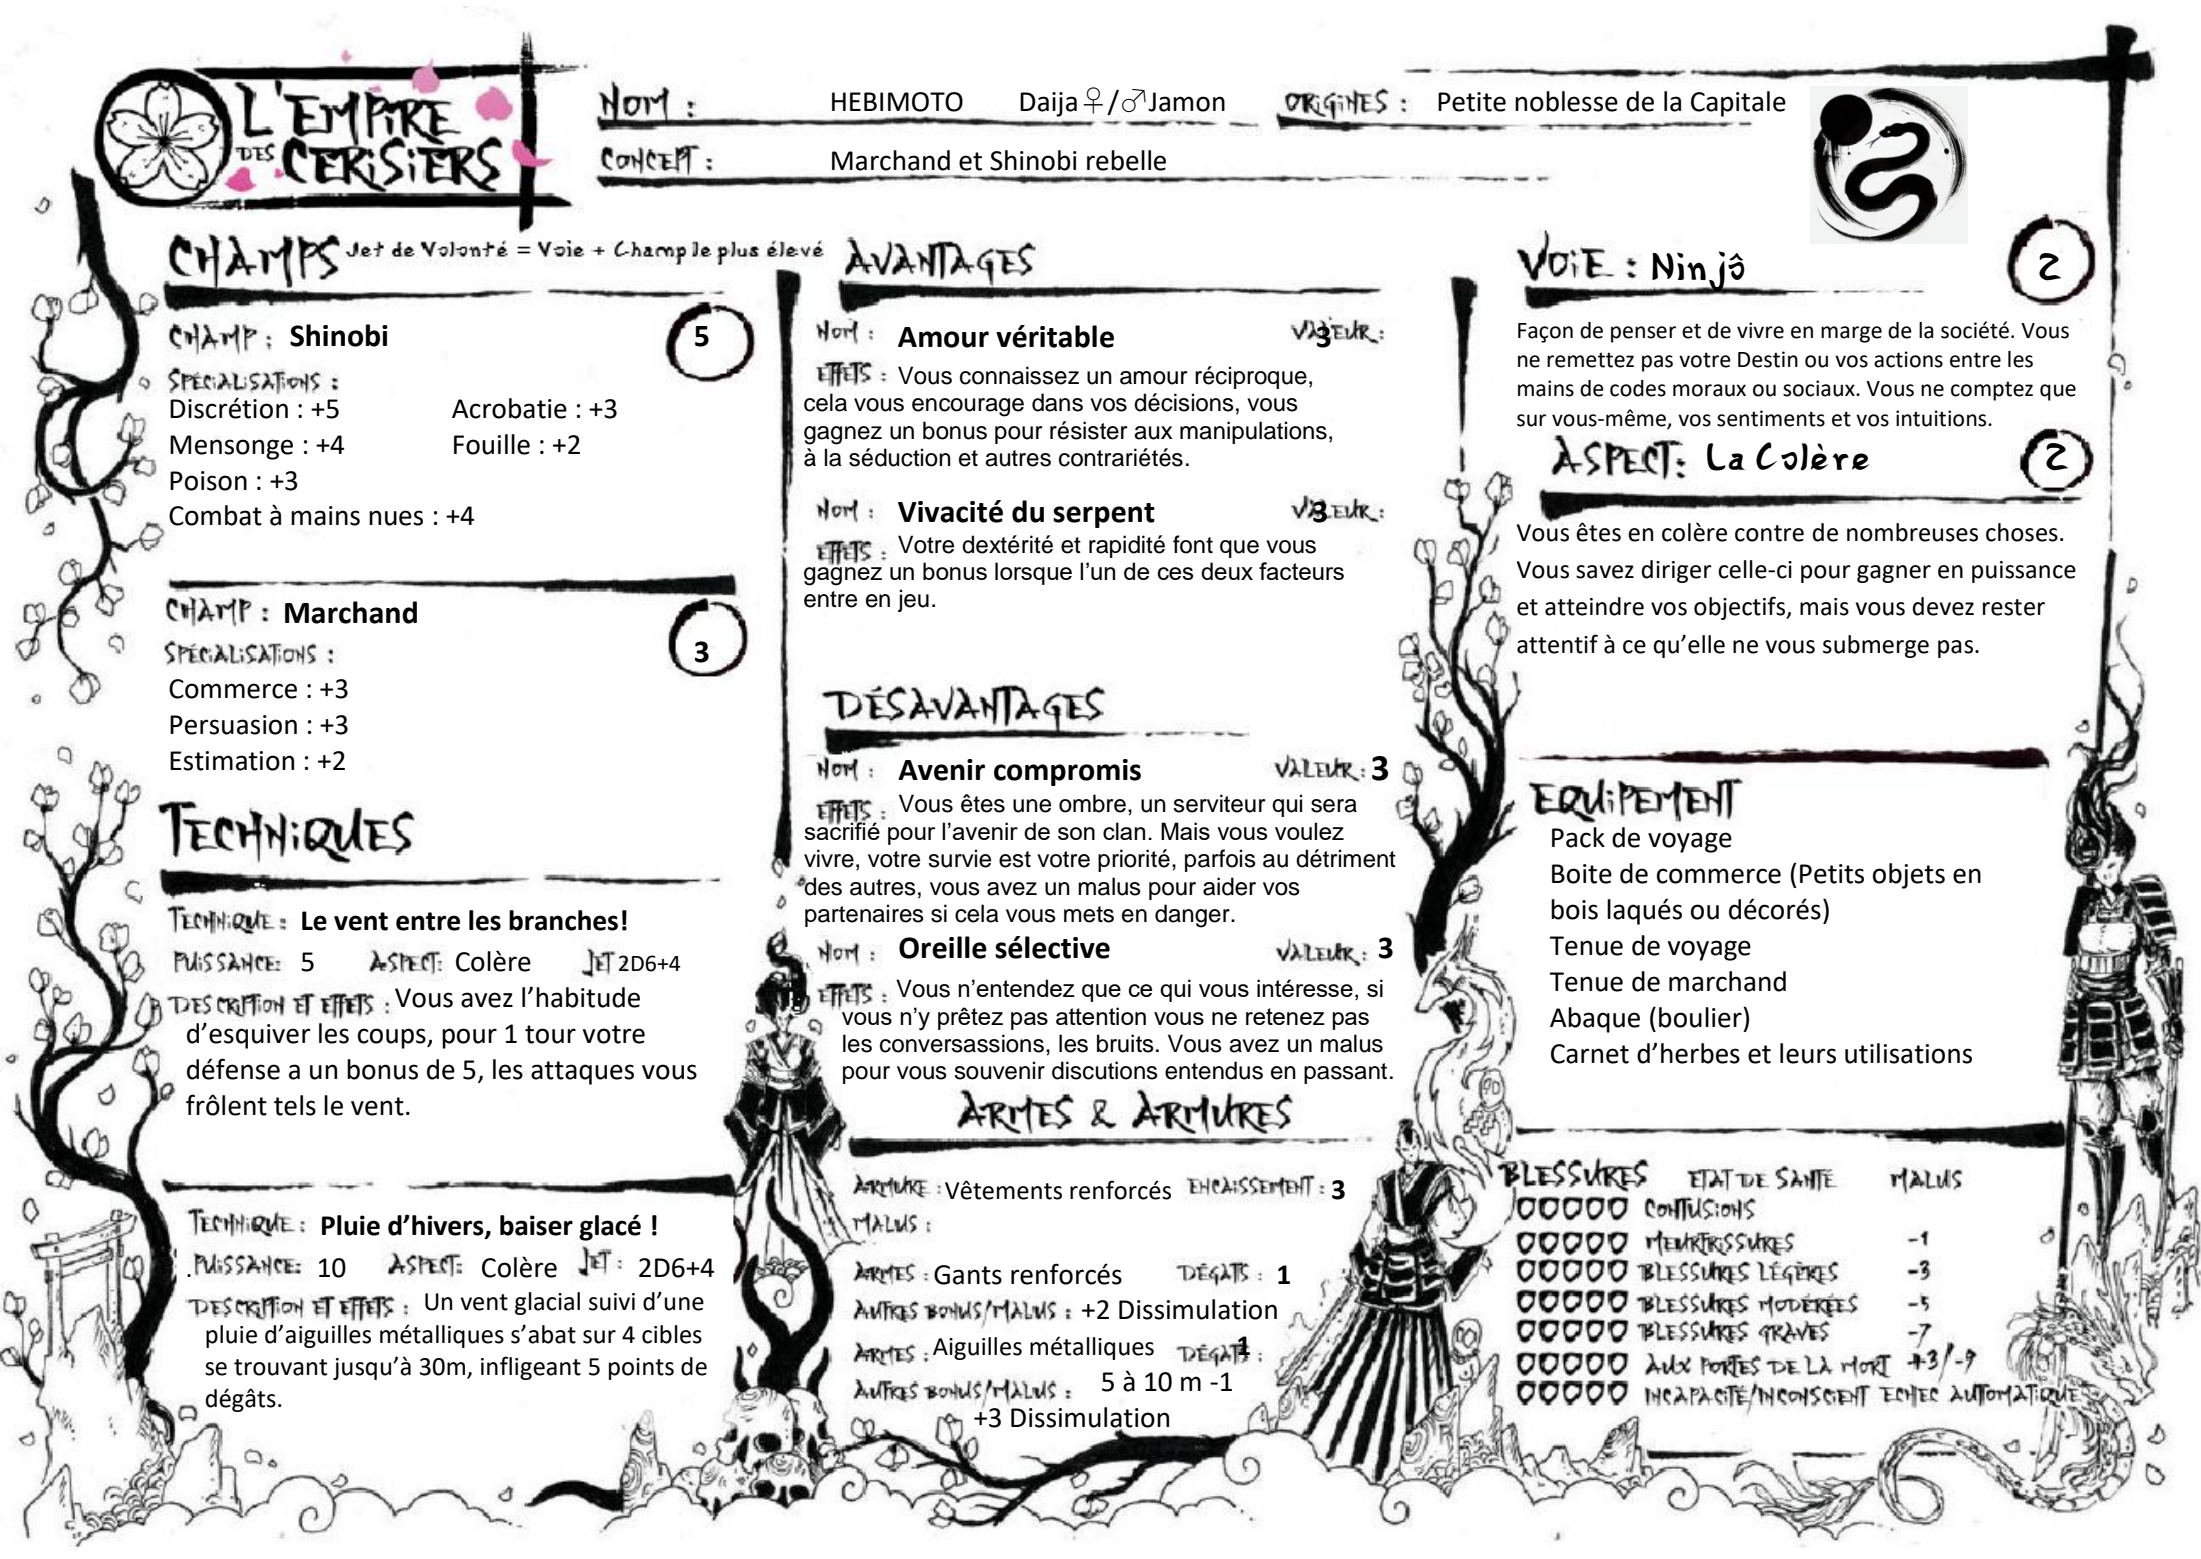 L'EMPIRE
DES CERISIERS
NOM : HEBIMOTO Daija♀/♂Jamon
ORIGINES : Petite noblesse de la Capitale
CONCEPT : Marchand et Shinobi rebelle
CHAMPS Jet de Volonté = Voie + Champ le plus élevé
CHAMP : Shinobi 5
SPÉCIALISATIONS :
Discrétion : +5 Acrobatie : +3
Mensonge : +4 Fouille : +2
Poison : +3
Combat à mains nues : +4
CHAMP : Marchand 3
SPÉCIALISATIONS :
Commerce : +3
Persuasion : +3
Estimation : +2
TECHNIQUES
TECHNIQUE : Le vent entre les branches!
PUISSANCE: 5 ASPECT: Colère JET 2D6+4
DESCRIPTION ET EFFETS : Vous avez l’habitude
d’esquiver les coups, pour 1 tour votre
défense a un bonus de 5, les attaques vous
frôlent tels le vent.
TECHNIQUE : Pluie d’hivers, baiser glacé !
PUISSANCE: 10 ASPECT: Colère JET : 2D6+4
DESCRIPTION ET EFFETS : Un vent glacial suivi d’une
pluie d’aiguilles métalliques s’abat sur 4 cibles
se trouvant jusqu’à 30m, infligeant 5 points de
dégâts.
AVANTAGES
NOM : Amour véritable VALEUR : 3
EFFETS : Vous connaissez un amour réciproque,
cela vous encourage dans vos décisions, vous
gagnez un bonus pour résister aux manipulations,
à la séduction et autres contrariétés.
NOM : Vivacité du serpent VALEUR : 3
EFFETS : Votre dextérité et rapidité font que vous
gagnez un bonus lorsque l’un de ces deux facteurs
entre en jeu.
DÉSAVANTAGES
NOM : Avenir compromis VALEUR : 3
EFFETS : Vous êtes une ombre, un serviteur qui sera
sacrifié pour l’avenir de son clan. Mais vous voulez
vivre, votre survie est votre priorité, parfois au détriment
des autres, vous avez un malus pour aider vos
partenaires si cela vous mets en danger.
NOM : Oreille sélective VALEUR : 3
EFFETS : Vous n’entendez que ce qui vous intéresse, si
vous n’y prêtez pas attention vous ne retenez pas
les conversassions, les bruits. Vous avez un malus
pour vous souvenir discutions entendus en passant.
ARMES & ARMURES
ARMURE : Vêtements renforcés ENCAISSEMENT : 3
MALUS :
ARMES : Gants renforcés DÉGATS : 1
AUTRES BONUS/MALUS : +2 Dissimulation
ARMES : Aiguilles métalliques DÉGATS : 1
AUTRES BONUS/MALUS : 5 à 10 m -1
+3 Dissimulation
VOIE : Ninjô 2
Façon de penser et de vivre en marge de la société. Vous
ne remettez pas votre Destin ou vos actions entre les
mains de codes moraux ou sociaux. Vous ne comptez que
sur vous-même, vos sentiments et vos intuitions.
ASPECT: La Colère 2
Vous êtes en colère contre de nombreuses choses.
Vous savez diriger celle-ci pour gagner en puissance
et atteindre vos objectifs, mais vous devez rester
attentif à ce qu’elle ne vous submerge pas.
EQUIPEMENT
Pack de voyage
Boite de commerce (Petits objets en
bois laqués ou décorés)
Tenue de voyage
Tenue de marchand
Abaque (boulier)
Carnet d’herbes et leurs utilisations
BLESSURES ETAT DE SANTE MALUS
CONTUSIONS
MEURTRISSURES -1
BLESSURES LÉGÈRES -3
BLESSURES MODÉRÉES -5
BLESSURES GRAVES -7
AUX PORTES DE LA MORT +3/-9
INCAPACITÉ/INCONSCIENT ECHEC AUTOMATIQUE